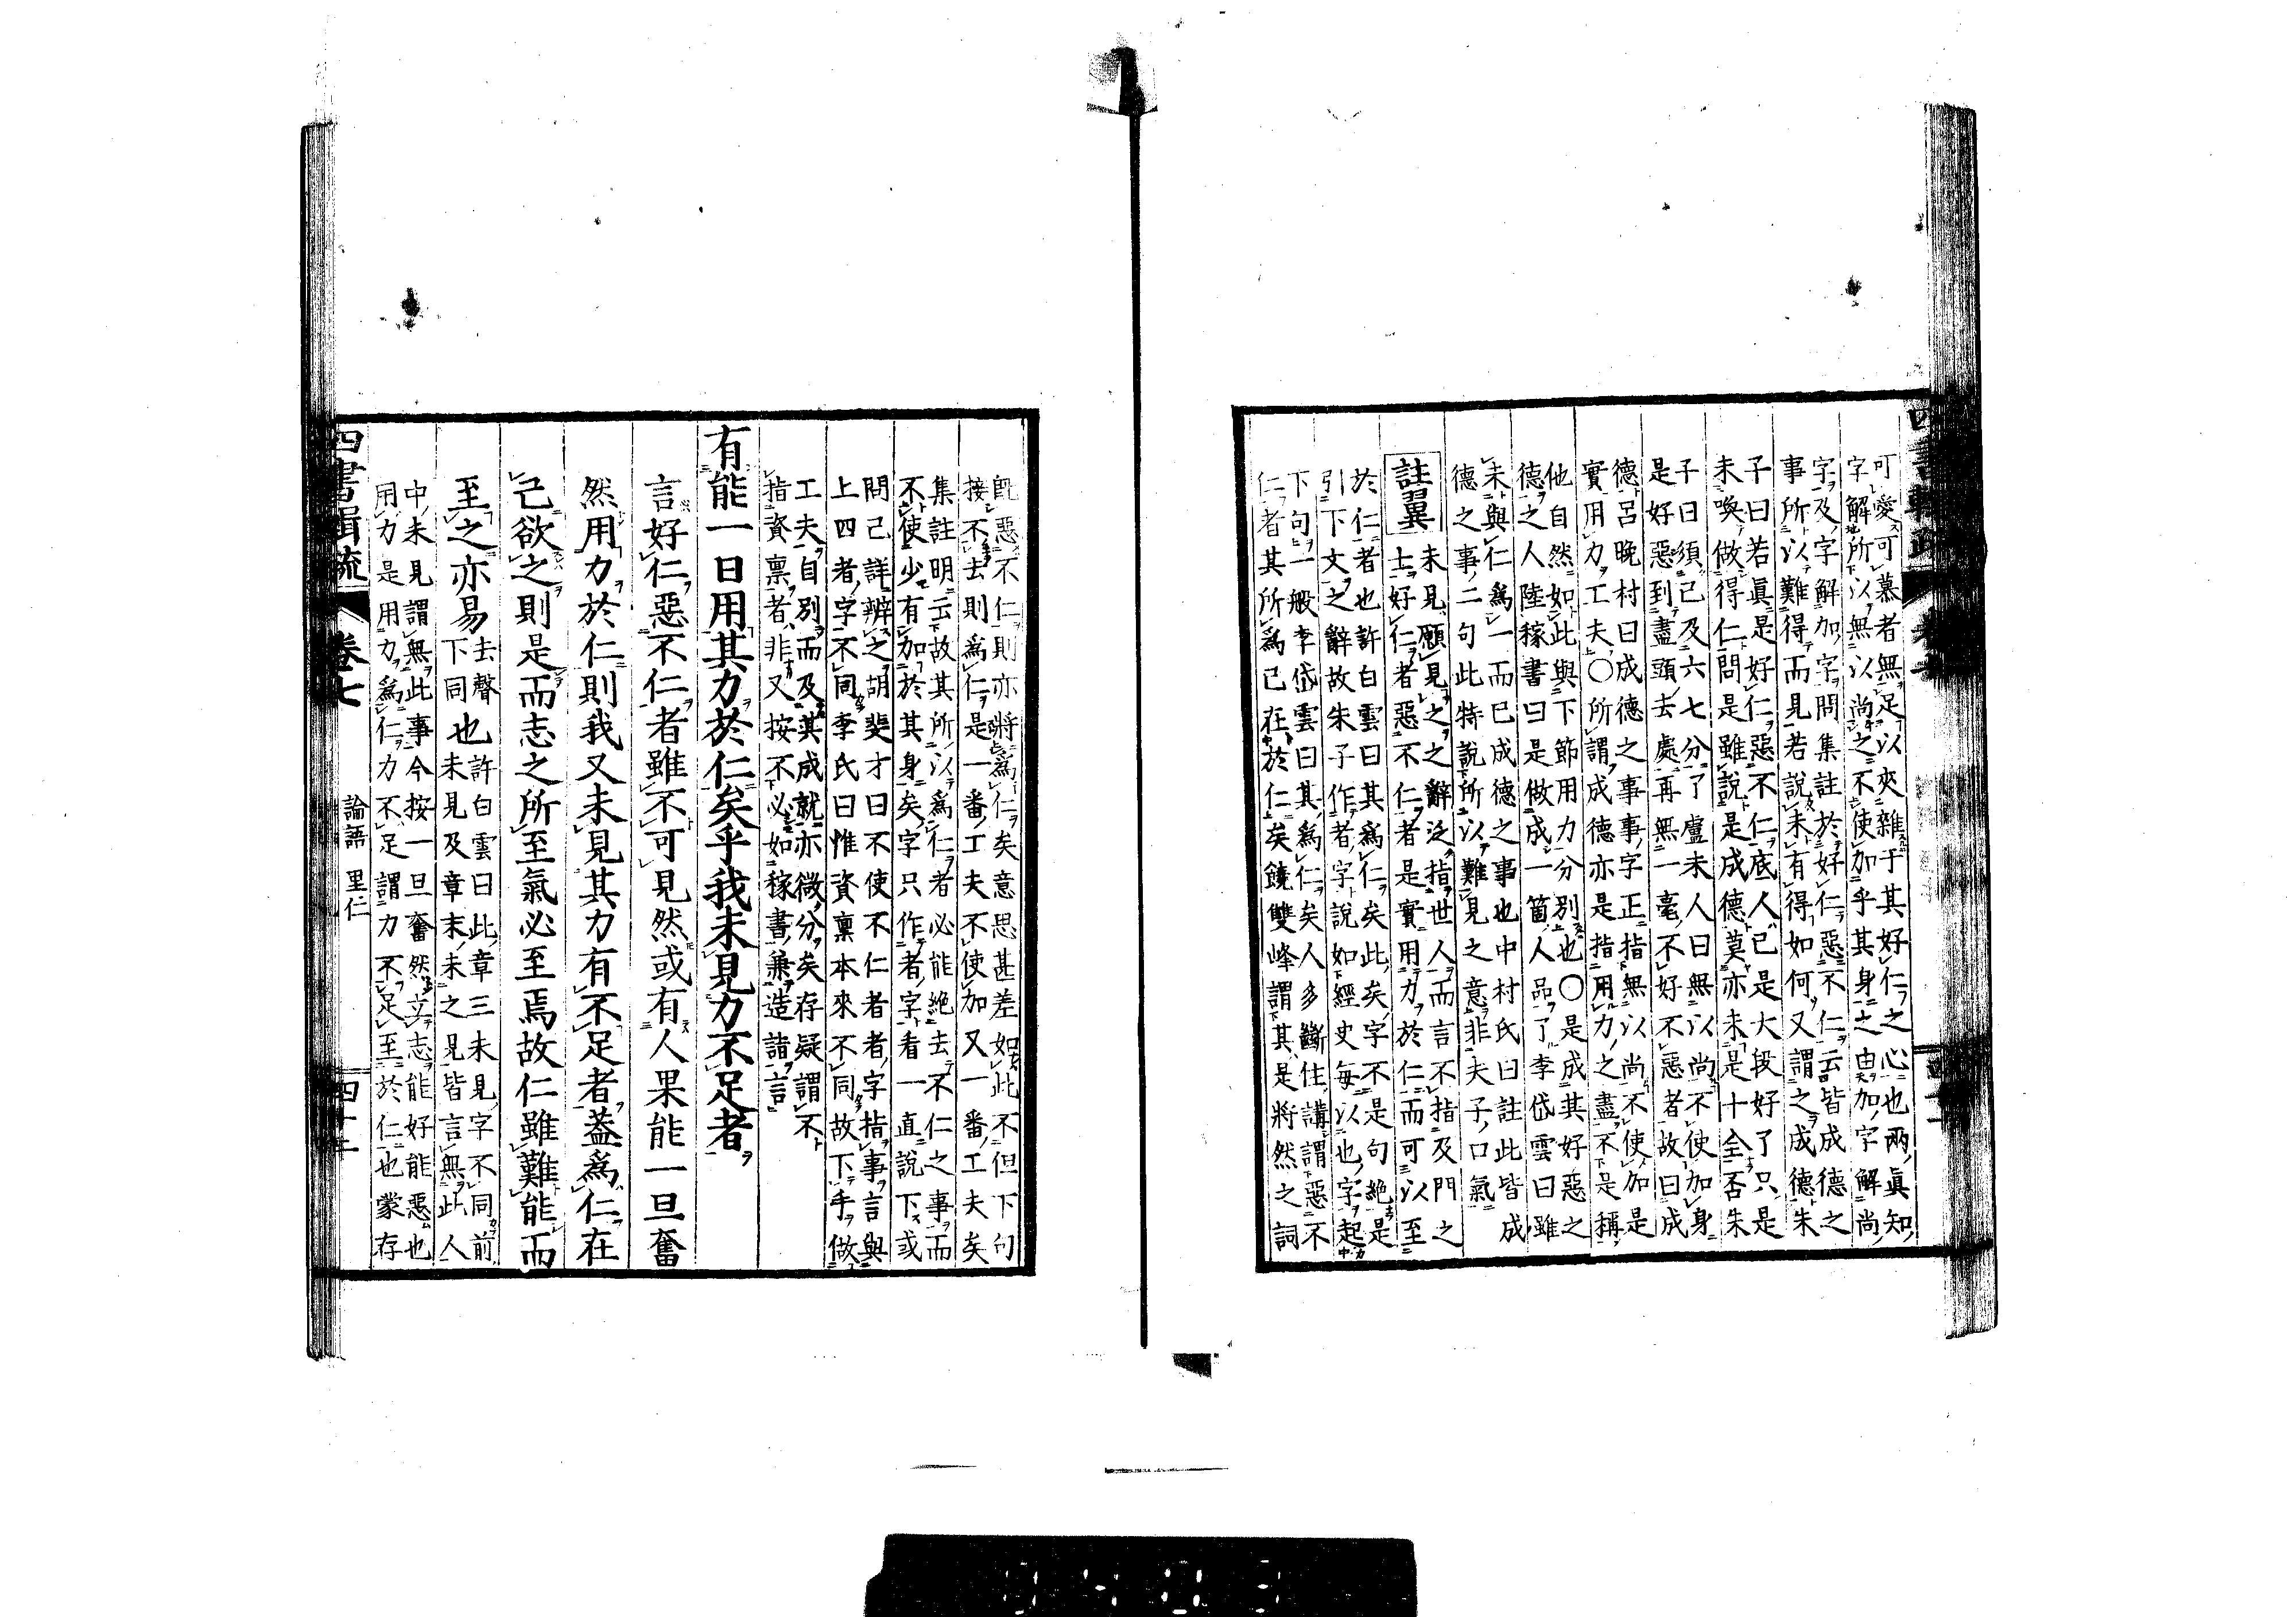 可愛可慕者無足以夾雜于其好仁之心也兩眞知
字解所以無以尚之不使加乎其身之由加字解尚
字及字解加字問集註於好仁惡不仁云皆成德之
事所以難得而見若說未有得如何又謂之成德朱
子曰若眞是好仁惡不仁底人已是大段好了只是
未喚做得仁問是雖說是成德莫亦未是十全否朱
子曰須已及六七分了盧未人曰無以尚不使加身
是好惡到盡頭去處再無一毫不好不惡者故曰成
德呂晚村曰成德之事事字正指無以尚不使加是
實用力工夫〇所謂成德亦是指用力之盡不是稱
他自然如此與下節用力分別也〇是成其好惡之
德之人陸稼書曰是做成一箇人品了李岱雲曰雖
未與仁爲一而已成德之事也中村氏曰註此皆成
德之事二句此特說所以難見之意非夫子口氣
註翼
未見願見之之辭泛指世人而言不指及門之
士好仁者惡不仁者是實用力於仁而可以至
於仁者也許白雲曰其爲仁矣此矣字不是句絕是
引下文之辭故朱子作者字說如經史每以也字起
下句一般李岱雲曰其爲仁矣人多斷住講謂惡不
仁者其所爲已在於仁矣饒雙峰謂其是將然之詞
四書輯疏
既惡不仁則亦將爲仁矣意思甚差如此不但下句
接不去則爲仁是一番工夫不使加又一番工夫矣
集註明云故其所以爲仁者必能絕去不仁之事而
不使少有加於其身矣字只作者字看一直說下或
問已詳辨之胡斐才曰不使不仁者者字指事言與
上四者字不同李氏曰惟資稟本來不同故下手做
工夫自別而及其成就亦微分矣存疑謂不
指資稟者非又按不必如稼書兼造詣言
有能一日用其力於仁矣乎我未見力不足者
言好仁惡不仁者雖不可見然或有人果能一旦奮
然用力於仁則我又未見其力有不足者蓋爲仁在
己欲之則是而志之所至氣必至焉故仁雖難能而
至之亦易去聲下同也許白雲曰此章三未見字不同前
未見及章末未之見皆言無此人
中未見謂無此事今按一旦奮然立志能好能惡也
用力是用力爲仁力不足謂力不足至於仁也蒙存
四書輯疏 卷七 論語 里仁